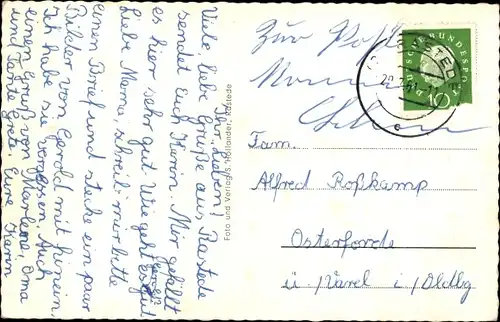 Ihr Lieben!
Viele liebe Grüße aus Rastede
sendet Euch Karin. Mir gefällt
es hier sehr gut. Wie geht es Euch?
Liebe Mama, schreib mir bitte
einen Brief und stecke ein paar
Bilder von Gerold mit hinein.
Ich habe sie vergessen. Auch
einen Gruß von Marlene, Oma
und Tante Grete Eure Karin
Foto und Verlag S. Rastede
Zur
DEUTSCHE BUNDESPOST
10
Fam.
Alfred Roßkamp
Osterforde
ü/Varel i/Oldbg